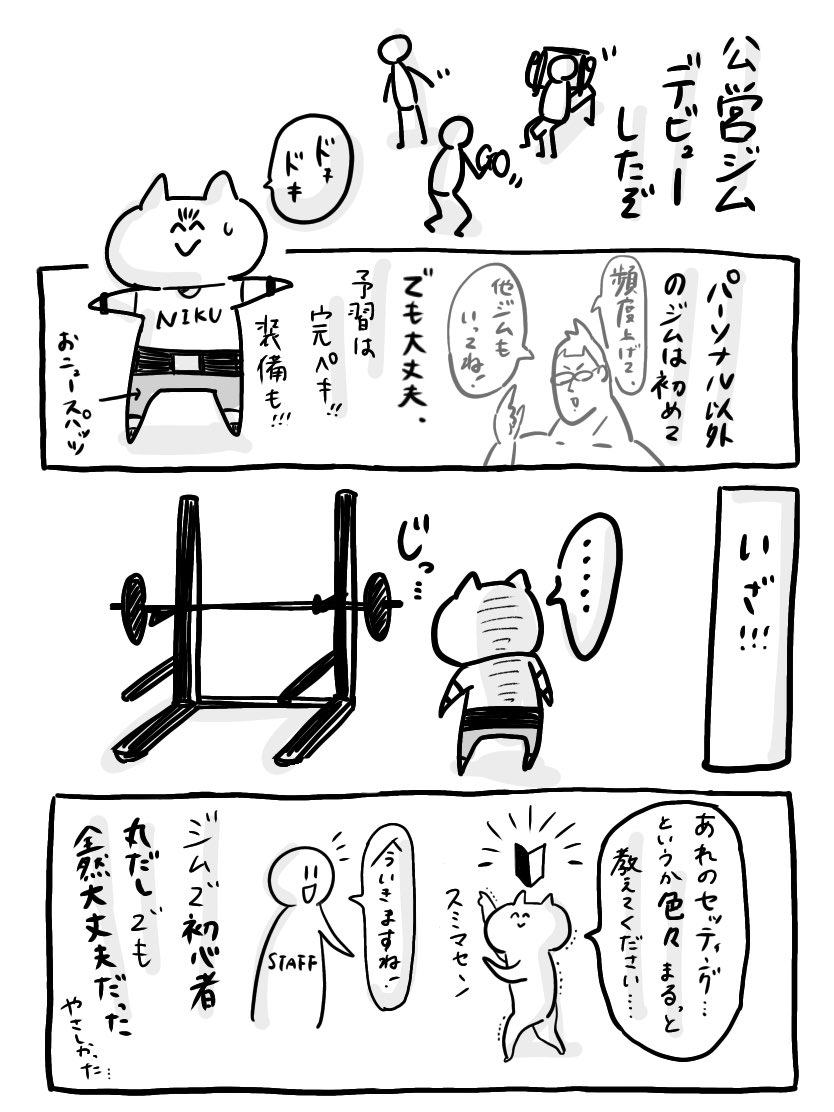 公営ジム
デビュー
したぞ
ドキ
ドキ
パーソナル以外
のジムは初めて
頻度上げて、
他ジムも
いってね!
でも大丈夫、
予習は
完ペキ!!
装備も!!!
NIKU
おニュースパッツ
いざ!!!
・・・・・
じっ…
あれのセッティング…
というか色々まるっと
教えてください…
スミマセーン
今いきますね!
STAFF
ジムで初心者
丸だしでも
全然大丈夫だった
やさしかった…